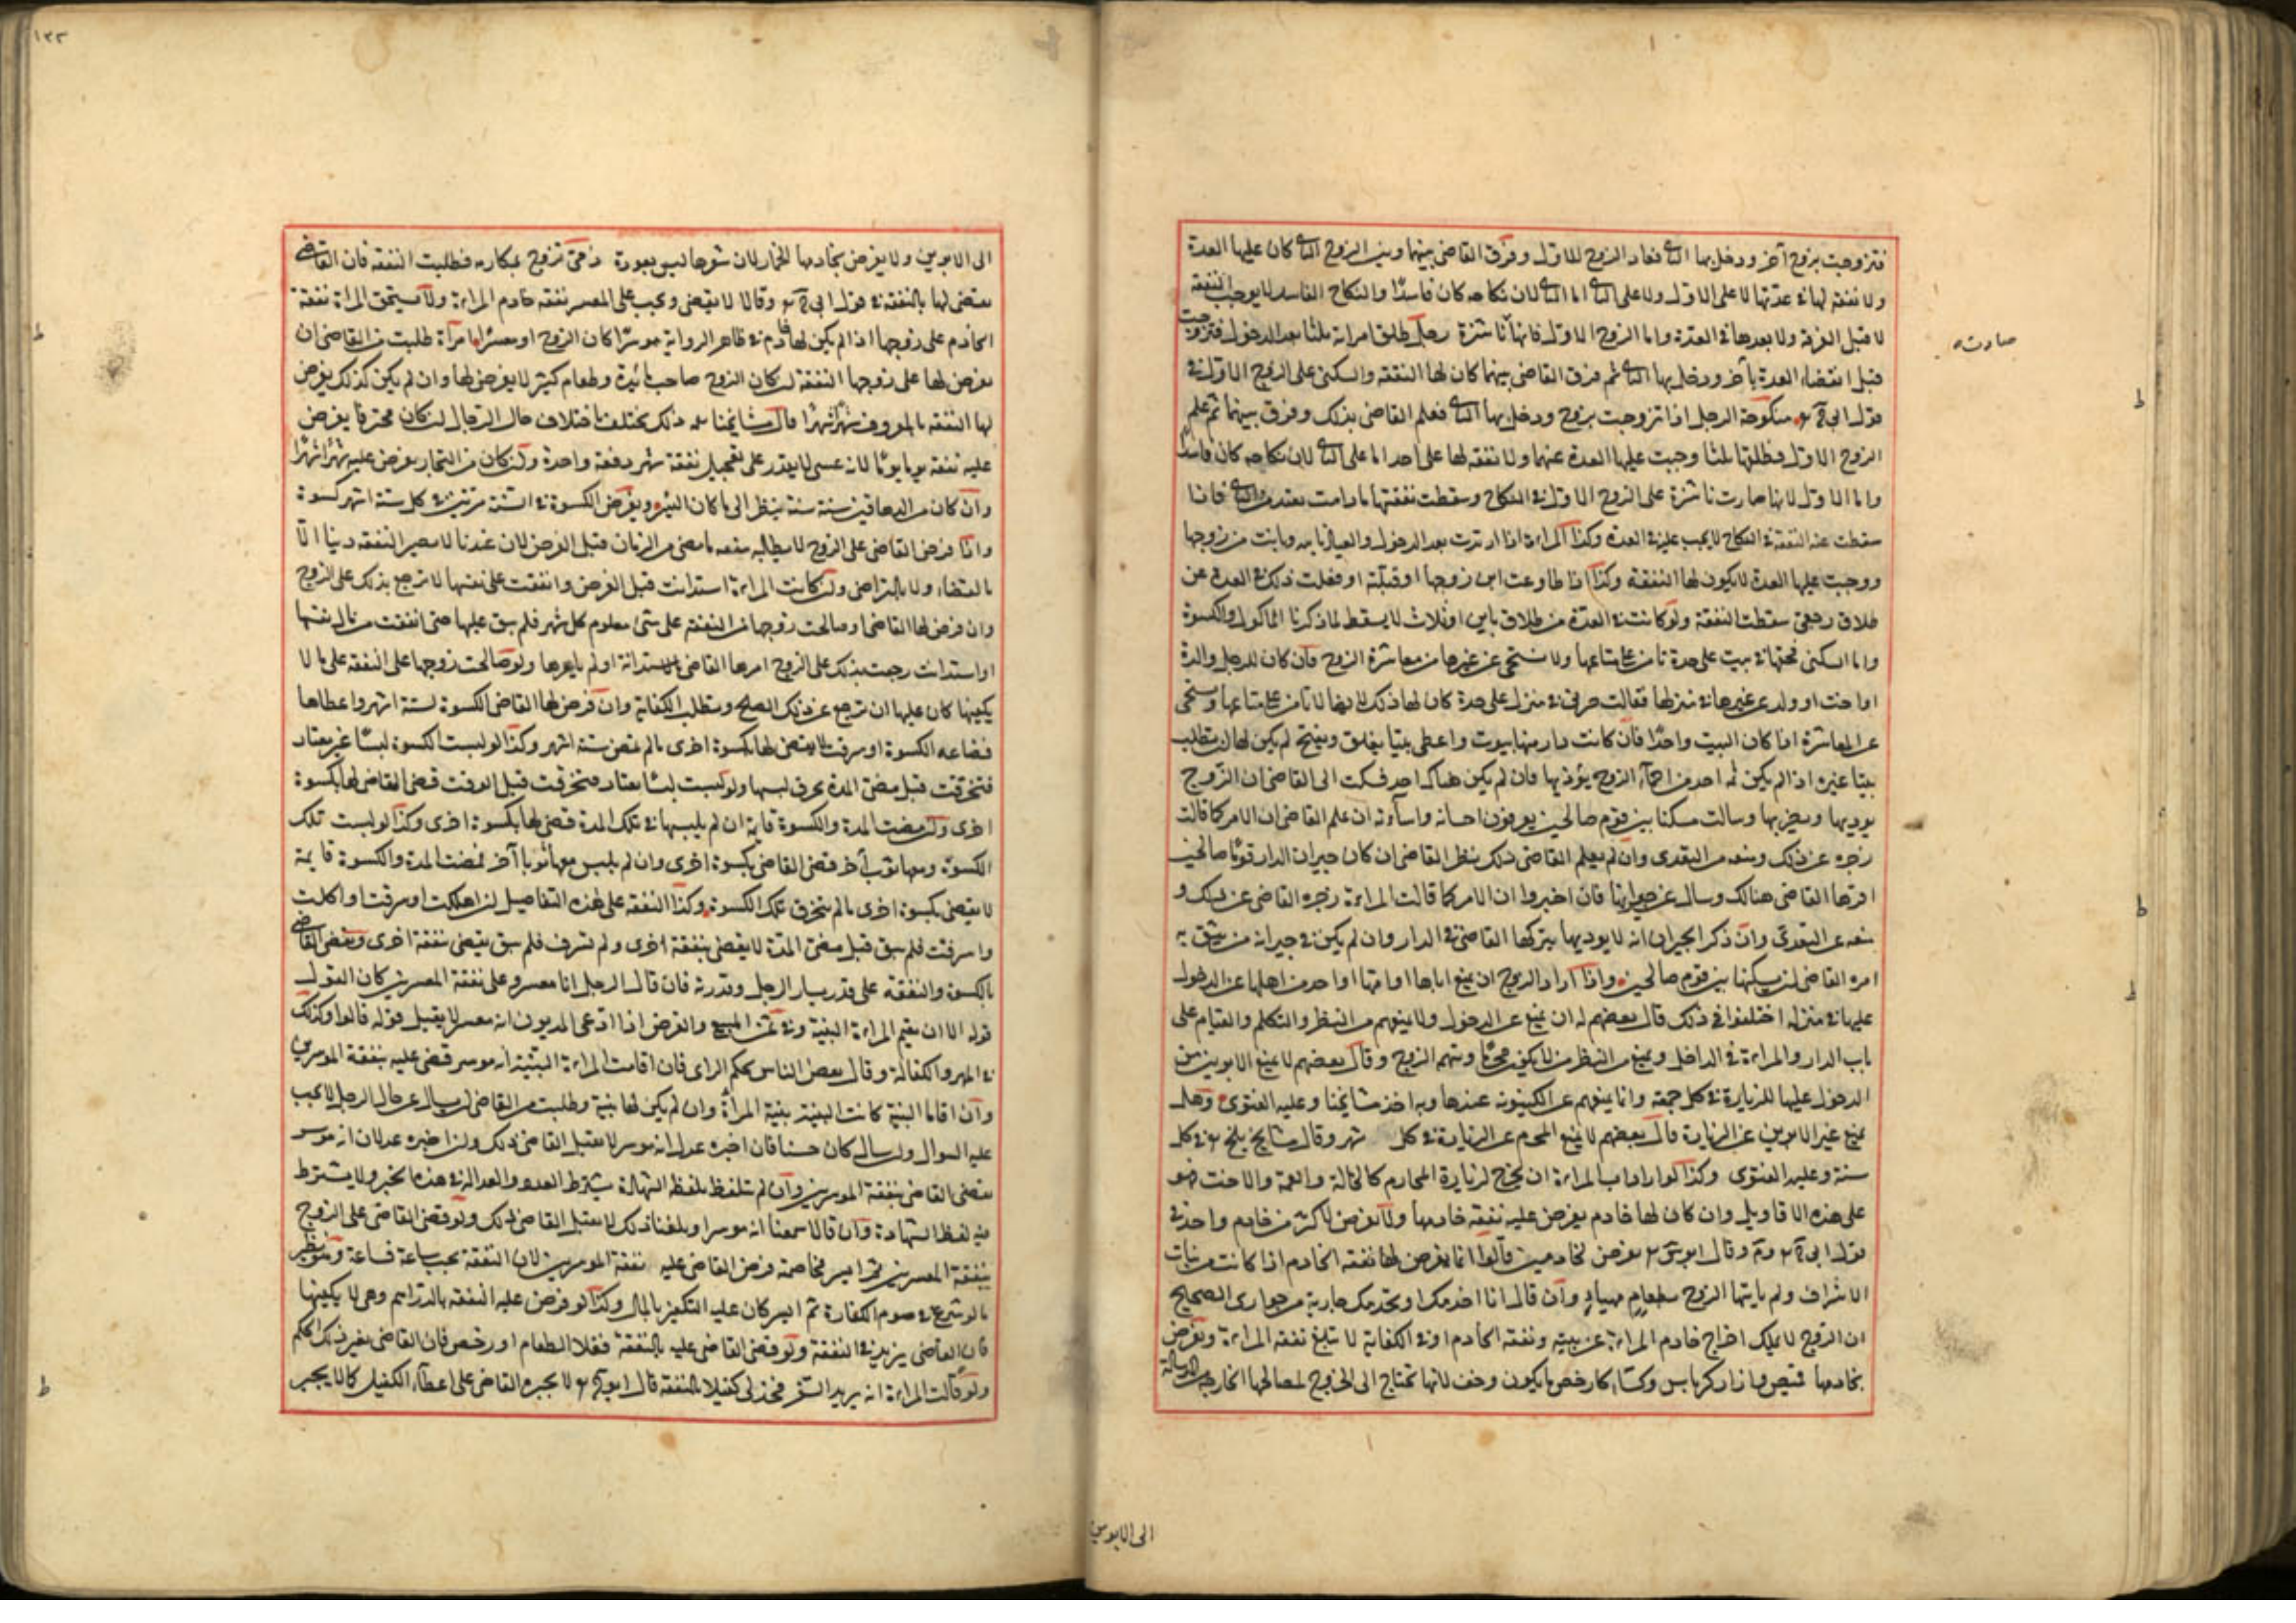 فتزوجت بزوج آخر ودخل بها الثانى فعاد الزوج الاول وفرق القاضى بينها وبين الزوج الثانى كان عليها العدة
ولا نفقة لها فى عدتها لا على الاول ولا على الثانى اما الثانى لان نكاحه كان فاسدًا والنكاح الفاسد لا يوجب النفقة
لا قبل الفرقة ولا بعدها فى العدة واما الزوج الاول فانها ناشزة رجل طلق امراته ثلثا بعد الدخول فتزوجت
صارت
قبل انقضاء العدة بآخر ودخل بها الثانى ثم فرق القاضى بينهما كان لها النفقة والسكنى على الزوج الاول فى
قول ابى ح منكوحة الرجل اذا تزوجت بزوج ودخل بها الثانى فعلم القاضى بذلك وفرق بينهما ثم علم
الزوج الاول فطلقها ثلثا وجبت عليها العدة عنهما ولا نفقة لها على احد اما على الثانى لان نكاحه كان فاسدا
واما الاول لانها صارت ناشزة على الزوج الاول فى النكاح وسقطت نفقتها ما دامت تعتد من الثانى فاذا
سقطت عنه النفقة فى النكاح لا يجب عليه فى العدة وكذا المراءة اذا ارتدت بعد الدخول والعياذ بالله وبانت من زوجها
ووجبت عليها العدة لا يكون لها النفقة وكذا اذا طاوعت ابن زوجها او قبلته او فعلت ذلك فى العدة عن
طلاق رجعى سقطت النفقة ولو كانت فى العدة من طلاق باين او ثلاث لا يسقط لما ذكرنا الماكول والكسوة
واما السكنى فحقها فى بيت على حدة تامن على متاعها ولا تستحى عن غيرها من معاشرة الزوج فان كان للرجل والدة
او اخت او ولد من غيرها فى منزلها فقالت صيرنى فى منزل على حدة كان لها ذلك لانها لا تامن على متاعها وتستحى
عن المعاشرة اذا كان البيت واحدًا فان كانت دار منها بيوت واعطى بيتا يغلق ويفتح لم يكن لها ان تطلب
بيتا غيره اذا لم يكن ثمه احد من احماء الزوج يؤذيها فان لم يكن هناك احد فشكت الى القاضى ان الزوج
يوذيها ويضربها وسالت مسكنا بين قوم صالحين يعرفون احسانه واساءته ان علم القاضى ان الامر كما قالت
زجره عن ذلك ومنعه من التعدى وان لم يعلم القاضى ذلك ينظر القاضى ان كان جيران الدار قومًا صالحين
اقرها القاضى هنالك وسال عن جيرانها فان اخبروا ان الامر كما قالت المراءة زجره القاضى عن ذلك و
منعه عن التعدى وان ذكر الجيران انه لا يوذيها يتركها القاضى فى الدار وان لم يكن فى جيرانه من يثق به
امره القاضى ان يسكنها بين قوم صالحين واذا اراد الزوج ان يمنع اباها او امها او احد من اهلها عن الدخول
عليها فى منزله اختلفوا فى ذلك قال بعضهم له ان يمنع عن الدخول ولا يمنعهم من النظر والتكلم والقيام على
باب الدار والمراءة فى الداخل ويمنع من النظر من لا يكون محرمًا ويتهم الزوج وقال بعضهم لا يمنع الابوين من
الدخول عليها للزيارة فى كل جمعة وانما يمنعهم عن الكينونة عندها وبه اخذ مشايخنا وعليه الفتوى وهل
يمنع غير الابوين عن الزيارة قال بعضهم لا يمنع المحرم عن الزيارة فى كل شهر وقال مشايخ بلخ فى كل
سنة وعليه الفتوى وكذا لو ارادت المراءة ان تخرج لزيارة المحارم كالخالة والعمة والاخت فهو
على هذه الاقاويل وان كان لها خادم يفرض عليه نفقة خادمها ولا يفرض لاكثر من خادم واحد فى
قول ابى ح وم وقال ابو يوسف يفرض لخادمين قالوا انما يفرض لها نفقة الخادم اذا كانت من بنات
الاشراف ولم ياتها الزوج بطعام مهياء وان قال انا اخدمك او تخدمك جارية من جوارى الصحيح
ان الزوج لا يملك اخراج خادم المراءة عن بيته ونفقة الخادم ادنى الكفاية لا تبلغ نفقة المراءة ويفرض
لخادمها قميص وازار كرباس وكساء كارخص ما يكون وخف لانها تحتاج الى الخروج لمصالحها الخارجة من الرسالة
الى الابوين
١٢٢
الى الابوين ولا يفرض لخادمها الخمار لان شعرها ليس بعورة ذمى تزوج بمحارمه فطلبت النفقة فان القاضى
يقضى لها بالنفقة فى قول ابى ح وقالا لا يقضى ويجب على المعسر نفقة خادم المراءة ولا تستحق المراة نفقة
الخادم على زوجها اذا لم يكن لها خادم فى ظاهر الرواية موسرًا كان الزوج او معسرًا امرأة طلبت من القاضى ان
يفرض لها على زوجها النفقة ان كان الزوج صاحب مائدة وطعام كثير لا يفرض لها وان لم يكن كذلك يفرض
لها النفقة بالمعروف شهرًا شهرًا قال مشايخنا ذلك يختلف باختلاف حال الرجال ان كان محترفا يفرض
عليه نفقة يوما يومًا لانه عسى لا يقدر على تعجيل نفقة شهر دفعة واحدة وان كان من التجار يفرض عليه شهرًا شهرًا
وان كان من الدهاقين سنة سنة ينظر الى ما كان ايسر ويفرض الكسوة فى السنة مرتين فى كل ستة اشهر كسوة
واذا فرض القاضى على الزوج لا يطالبه بنفقة ما مضى من الزمان قبل الفرض لان عندنا لا يصير النفقة دينا الا
بالقضاء ولا بالتراضى وان كانت المراءة استدانت قبل الفرض وانفقت على نفسها لا ترجع بذلك على الزوج
وان فرض لها القاضى او صالحت زوجها من النفقة على شئ معلوم كل شهر فلم ينفق عليها حتى انفقت من مال نفسها
او استدانت رجعت بذلك على الزوج امرها القاضى بالاستدانة او لم يامرها ولو صالحت زوجها على النفقة على ما لا
يكفيها كان عليها ان ترجع عن ذلك الصلح وتطلب الكفاية وان فرض لها القاضى الكسوة لستة اشهر واعطاها
فضاعت الكسوة او سرقت لا يقضى لها بكسوة اخرى ما لم تمض ستة اشهر وكذا لو لبست الكسوة لبسًا غير معتاد
فتخرقت قبل مضى المدة بخرق لبسها ولو لبست لبسًا معتادا فتخرقت قبل الوقت قضى القاضى لها بكسوة
اخرى ولو مضت المدة والكسوة قايمة ان لم يلبسها فى تلك المدة قضى لها بكسوة اخرى وكذا لو لبست تلك
الكسوة ومعها ثوب آخر قضى القاضى بكسوة اخرى وان لم يلبس معها ثوبا آخر فمضت المدة والكسوة قايمة
لا يقضى بكسوة اخرى ما لم يتخرق تلك الكسوة وكذا النفقة على هذه التفاصيل ان اهلكت او سرقت او اكلت
واسرفت فلم يبق قبل مضى المدة لا يقضى بنفقة اخرى ولم تسرف فلم يبق يقضى بنفقة اخرى ويقضى القاضى
بالكسوة والنفقة على قدر يسار الرجل وقدرته فان قال الرجل انا معسر وعلى نفقة المعسرين كان القول
قوله الا ان يقيم المراءة البينة وفى ثمن المبيع والقرض اذا ادعى المديون انه معسر لا يقبل قوله قالوا وكذلك
فى المهر والكفالة وقال بعض الناس يحكم الراى فان اقامت المراءة البينة انه موسر قضى عليه بنفقة الموسرين
وان اقاما البينة كانت البينة بينة المرأة وان لم يكن لها بينة وطلبت من القاضى ان يسال عن حال الرجل لا يجب
عليه السوال وان سال كان حسنا فان اخبره عدل انه موسر لا يقبل القاضى ذلك وان اخبره عدلان انه موسر
يقضى القاضى بنفقة الموسرين وان لم تتلفظ بلفظ الشهادة يشترط العدد والعدالة فى هذه الخبر ولا يشترط
فيه لفظ الشهادة وان قالا سمعنا انه موسر او بلغنا ذلك لا يقبل القاضى ذلك ولو قضى القاضى على الزوج
بنفقة المعسرين ثم ايسر فخاصمته فرض القاضى عليه نفقة الموسرين لان النفقة يجب ساعة فساعة وهو نظير
ما لو شرع فى صوم الكفارة ثم ايسر كان عليه التكفير بالمال وكذا لو فرض عليه النفقة بالدراهم وهى لا يكفيها
فان القاضى يزيد فى النفقة ولو قضى القاضى عليه بالنفقة فغلا الطعام او رخص فان القاضى يغير ذلك الحكم
ولو قالت المراءة انه يريد السفر فخذ لى كفيلا بالنفقة قال ابو ح لا يجبره القاضى على اعطاء الكفيل كما لا يجبر